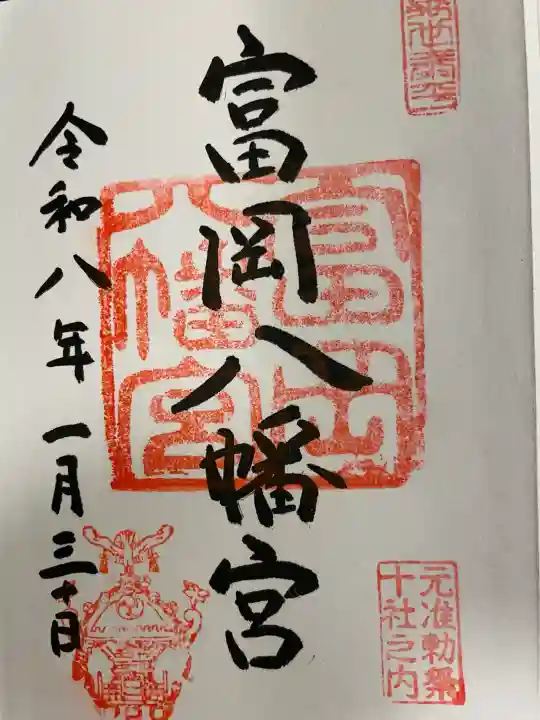 富岡八幡宮
富岡八幡宮
元准勅祭
十社之内
令和八年一月三十日